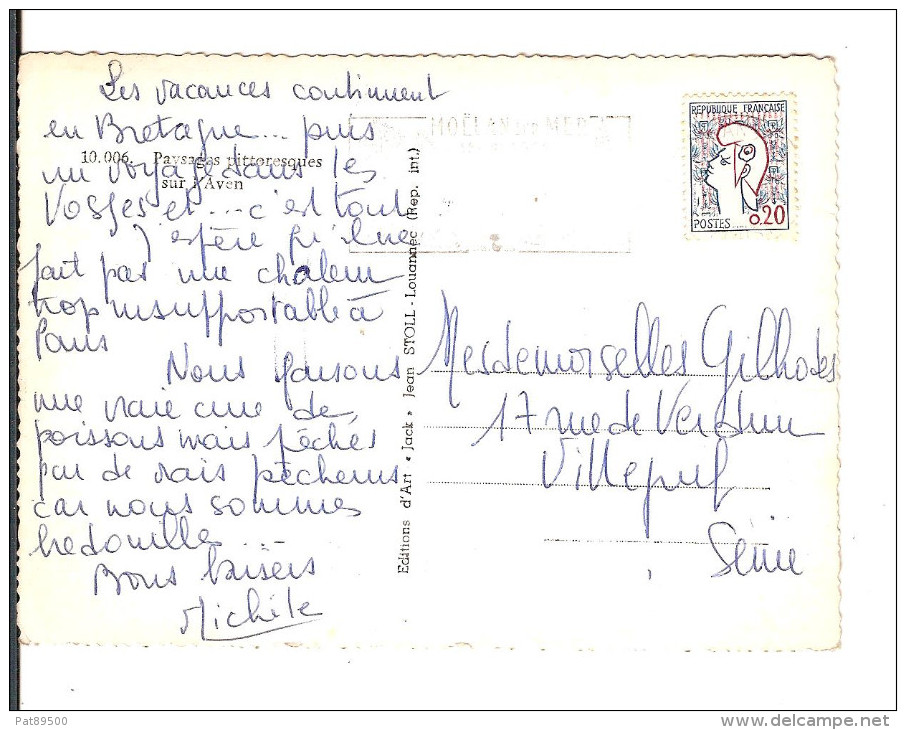 Les vacances continuent
en Bretagne... puis
un voyage dans les
Vosges et... c'est tout
J'espère qu'il ne
fait pas une chaleur
trop insupportable à
Paris
Nous faisons
une vraie cure de
poissons mais pêchés
par de vrais pêcheurs
car nous sommes
bredouilles...
Bons baisers
Michèle
10.006. Paysages pittoresques
sur l'Aven
Editions d'Art « Jack » Jean STOLL - Louannec (Rep. int.)
MOËLAN SUR MER
REPUBLIQUE FRANÇAISE
POSTES 0,20
Mesdemoiselles Gilhodes
17 rue de Verdun
Villejuif
Seine
Pat89500
delcampe.net